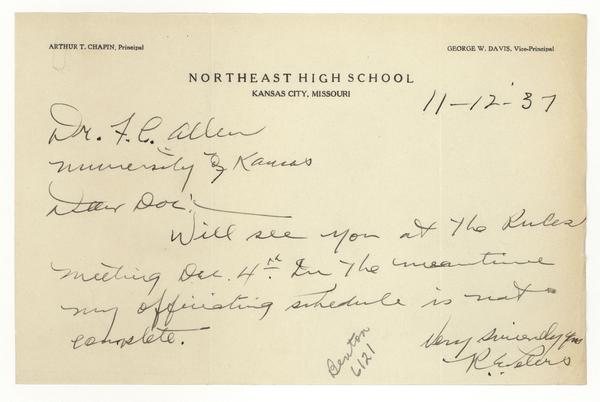 ARTHUR T. CHAPIN, Principal
GEORGE W. DAVIS, Vice-Principal
NORTHEAST HIGH SCHOOL
KANSAS CITY, MISSOURI
11-12-37
Dr. F. C. Allen
University of Kansas
Dear Doc:
Will see you at the Rules
meeting Dec. 4th. In the meantime
my officiating schedule is not
complete.
Very sincerely yrs
R. E. Peters
Benton
6121